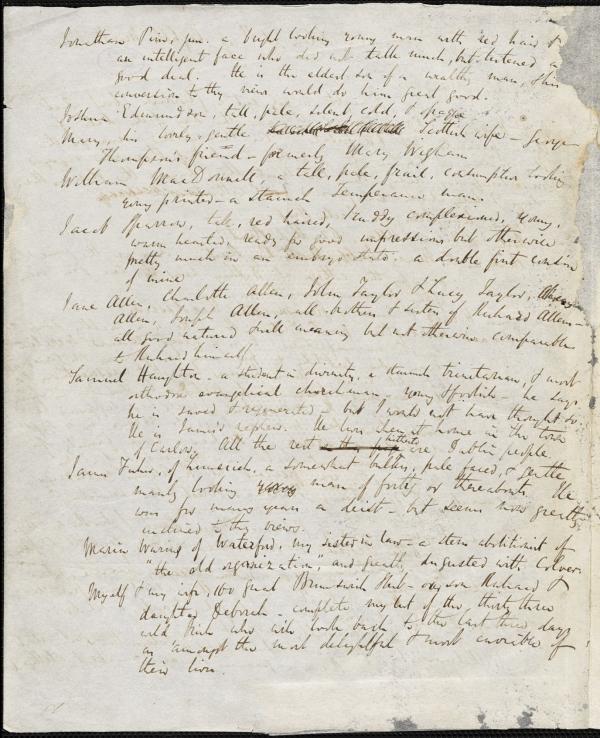 Jonathan Pim, jun. a bright looking young man with red hair &
an intelligent face who did not talk much, but listened a
good deal. He is the eldest son of a wealthy man, & his
conversion to thy views would do him great good.
Joshua Edmundson, tall, pale, silent, cold, &
Mary, his lovely, gentle Scottish wife - George
Thompson's friend - formerly Mary Wigham
William MacDonnell, a tall, pale, frail, consumptive looking
young printer - a staunch Temperance man.
Jacob Sparrow, tall, red haired, ruddy complexioned, young,
warm hearted, ready for good impressions but otherwise
pretty much in an embryo state. a double first cousin
of mine
Jane Allen, Charlotte Allen, John Taylor & Lucy Taylor,
Allen, Joseph Allen, all brothers & sisters of Richard Allen -
all good natured & well meaning but not otherwise comparable
to Richard himself.
Samuel Haughton - a student in divinity, a staunch trinitarian, & most
orthodox evangelical churchman, young & foolish - he says
he is saved & regenerated - but I would not have thought so.
He is James's nephew. He lives when at home in the town
of Carlow. All the rest hitherto are Dublin people.
James Fisher, of Limerick, a somewhat bulky, pale faced, & gentle
manly looking man of forty or thereabouts. He
was for many years a deist - but seems now greatly
inclined to thy views.
Maria Waring of Waterford, my sister in law - a stern abolitionist of
"the old organization", and greatly disgusted with Colver.
Myself & my wife, 160 Great Brunswick Street - our son Richard &
daughter Deborah - complete my list of the thirty three
wild Irish who will look back to the last three days
as amongst the most delightful & most enviable of
their lives.